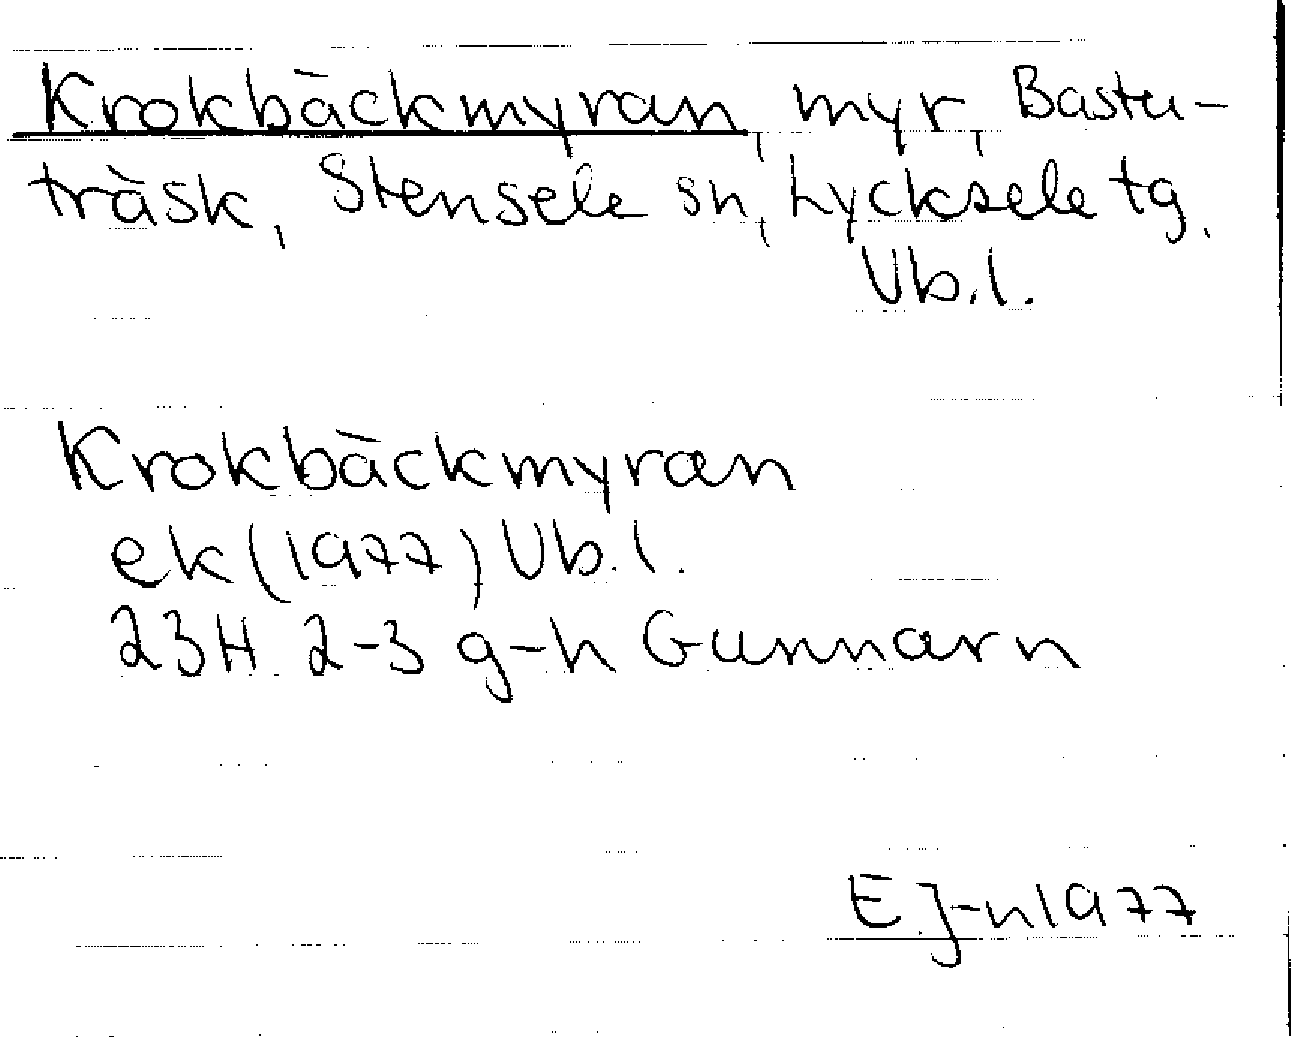 Krokbäckmyran, myr, Bastu-
träsk, Stensele sn, Lycksele tg.
Vb.l.
Krokbäckmyran
ek (1977) Vb.l.
23H 2-3 g-h Gunnarn
E J-n 1977